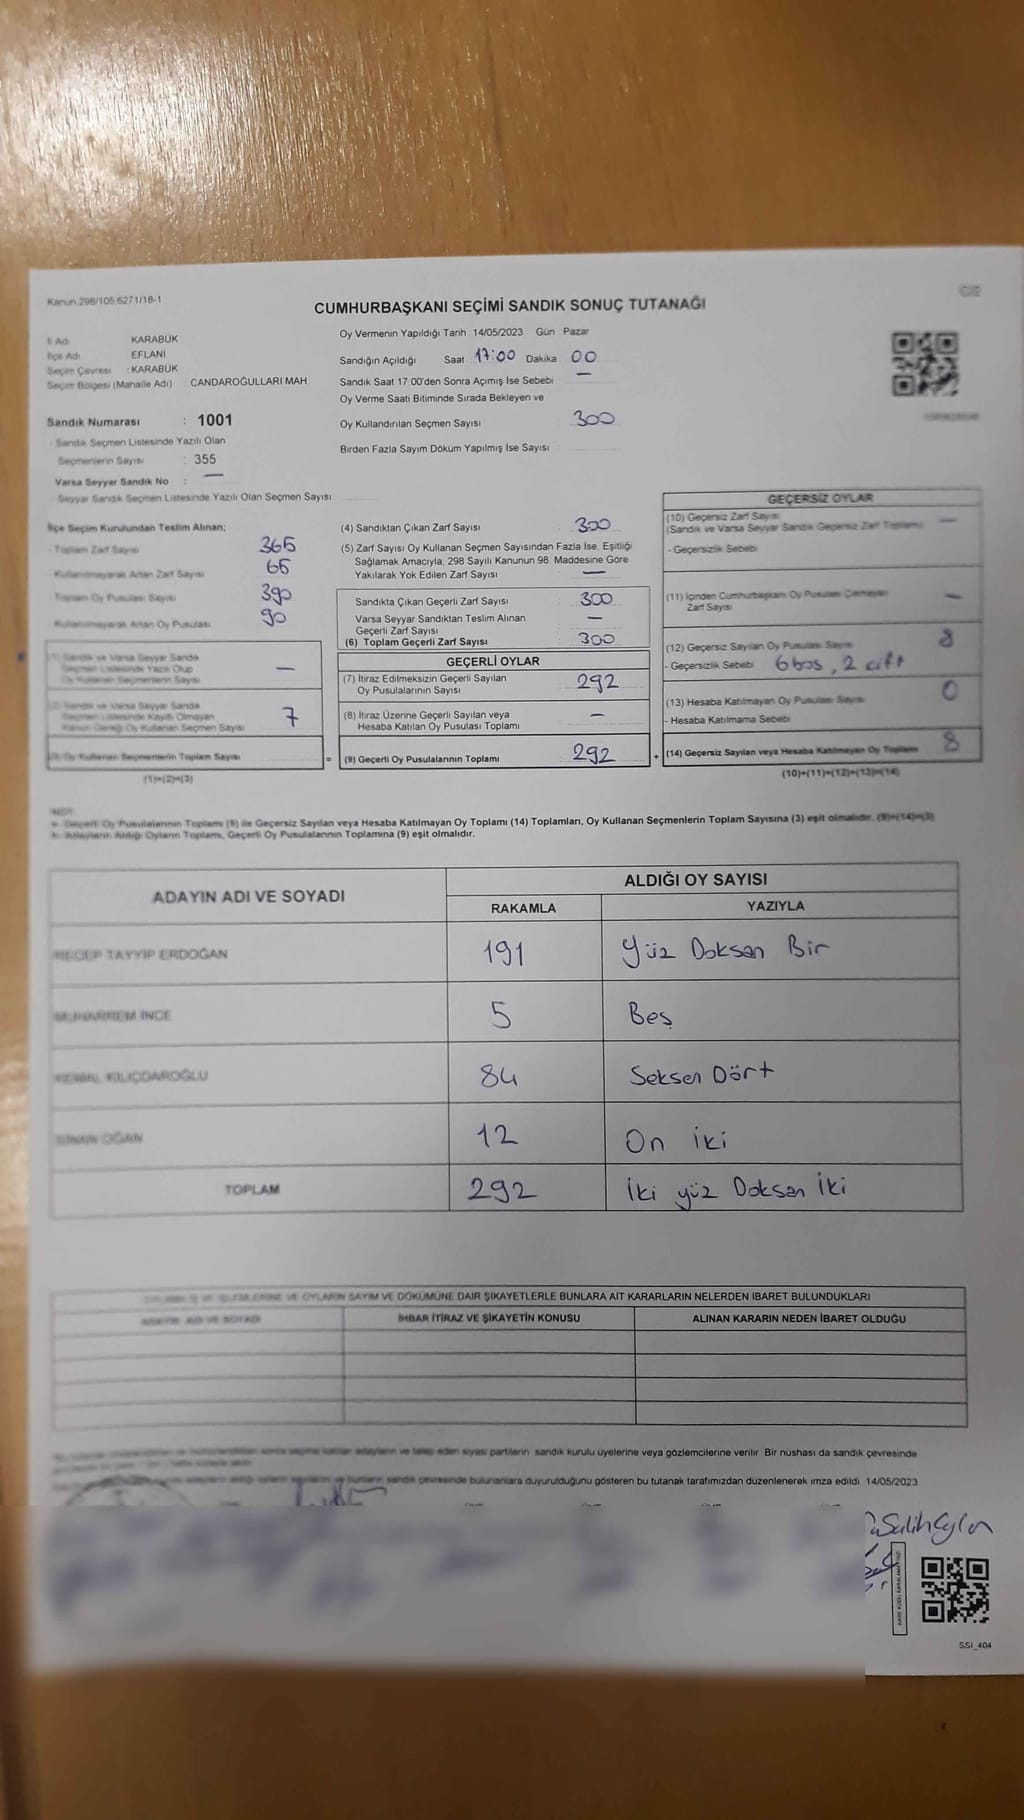 Kanun:298/105;6271/18-1
CUMHURBAŞKANI SEÇİMİ SANDIK SONUÇ TUTANAĞI
İl Adı KARABÜK
İlçe Adı EFLANİ
Seçim Çevresi : KARABÜK
Seçim Bölgesi (Mahalle Adı) CANDAROĞULLARI MAH
Sandık Numarası : 1001
- Sandık Seçmen Listesinde Yazılı Olan
Seçmenlerin Sayısı : 355
Varsa Seyyar Sandık No : —
- Seyyar Sandık Seçmen Listesinde Yazılı Olan Seçmen Sayısı
Oy Vermenin Yapıldığı Tarih 14/05/2023 Gün Pazar
Sandığın Açıldığı Saat 17:00 Dakika 00
Sandık Saat 17 00'den Sonra Açımış İse Sebebi —
Oy Verme Saati Bitiminde Sırada Bekleyen ve
Oy Kullandırılan Seçmen Sayısı 300
Birden Fazla Sayım Döküm Yapılmış İse Sayısı
İlçe Seçim Kurulundan Teslim Alınan;
- Toplam Zarf Sayısı 365
- Kullanılmayarak Artan Zarf Sayısı 65
- Toplam Oy Pusulası Sayısı 390
- Kullanılmayarak Artan Oy Pusulası 90
(1) Sandık ve Varsa Seyyar Sandık
Seçmen Listesinde Yazılı Olup
Oy Kullanan Seçmenlerin Sayısı —
(2) Sandık ve Varsa Seyyar Sandık
Seçmen Listesinde Kayıtlı Olmayan
Kanun Gereği Oy Kullanan Seçmen Sayısı 7
(3) Oy Kullanan Seçmenlerin Toplam Sayısı =
(1)+(2)=(3)
(4) Sandıktan Çıkan Zarf Sayısı 300
(5) Zarf Sayısı Oy Kullanan Seçmen Sayısından Fazla İse, Eşitliği
Sağlamak Amacıyla, 298 Sayılı Kanunun 98 Maddesine Göre
Yakılarak Yok Edilen Zarf Sayısı —
Sandıkta Çıkan Geçerli Zarf Sayısı 300
Varsa Seyyar Sandıktan Teslim Alınan
Geçerli Zarf Sayısı —
(6) Toplam Geçerli Zarf Sayısı 300
GEÇERLİ OYLAR
(7) İtiraz Edilmeksizin Geçerli Sayılan
Oy Pusulalarının Sayısı 292
(8) İtiraz Üzerine Geçerli Sayılan veya
Hesaba Katılan Oy Pusulası Toplamı —
(9) Geçerli Oy Pusulalarının Toplamı 292 +
GEÇERSİZ OYLAR
(10) Geçersiz Zarf Sayısı
(Sandık ve Varsa Seyyar Sandık Geçersiz Zarf Toplamı) —
- Geçersizlik Sebebi
(11) İçinden Cumhurbaşkanı Oy Pusulası Çıkmayan
Zarf Sayısı —
(12) Geçersiz Sayılan Oy Pusulası Sayısı 8
- Geçersizlik Sebebi 6 boş, 2 çift
(13) Hesaba Katılmayan Oy Pusulası Sayısı 0
- Hesaba Katılmama Sebebi
(14) Geçersiz Sayılan veya Hesaba Katılmayan Oy Toplamı 8
(10)+(11)+(12)+(13)=(14)
NOT:
a- Geçerli Oy Pusulalarının Toplamı (9) ile Geçersiz Sayılan veya Hesaba Katılmayan Oy Toplamı (14) Toplamları, Oy Kullanan Seçmenlerin Toplam Sayısına (3) eşit olmalıdır. (9)+(14)=(3)
b- Adayların Aldığı Oyların Toplamı, Geçerli Oy Pusulalarının Toplamına (9) eşit olmalıdır.
ADAYIN ADI VE SOYADI ALDIĞI OY SAYISI
RAKAMLA YAZIYLA
RECEP TAYYİP ERDOĞAN 191 Yüz Doksan Bir
MUHARREM İNCE 5 Beş
KEMAL KILIÇDAROĞLU 84 Seksen Dört
SİNAN OĞAN 12 On iki
TOPLAM 292 İki yüz Doksan İki
OYLARIN SAYIM VE DÖKÜMÜNE DAİR ŞİKAYETLERLE BUNLARA AİT KARARLARIN NELERDEN İBARET BULUNDUKLARI
ADAYIN ADI VE SOYADI İHBAR İTİRAZ VE ŞİKAYETİN KONUSU ALINAN KARARIN NEDEN İBARET OLDUĞU
adayların ve talep eden siyasi partilerin sandık kurulu üyelerine veya gözlemcilerine verilir Bir nüshası da sandık çevresinde
sandık çevresinde bulunanlara duyurulduğunu gösteren bu tutanak tarafımızdan düzenlenerek imza edildi 14/05/2023
SSI_404